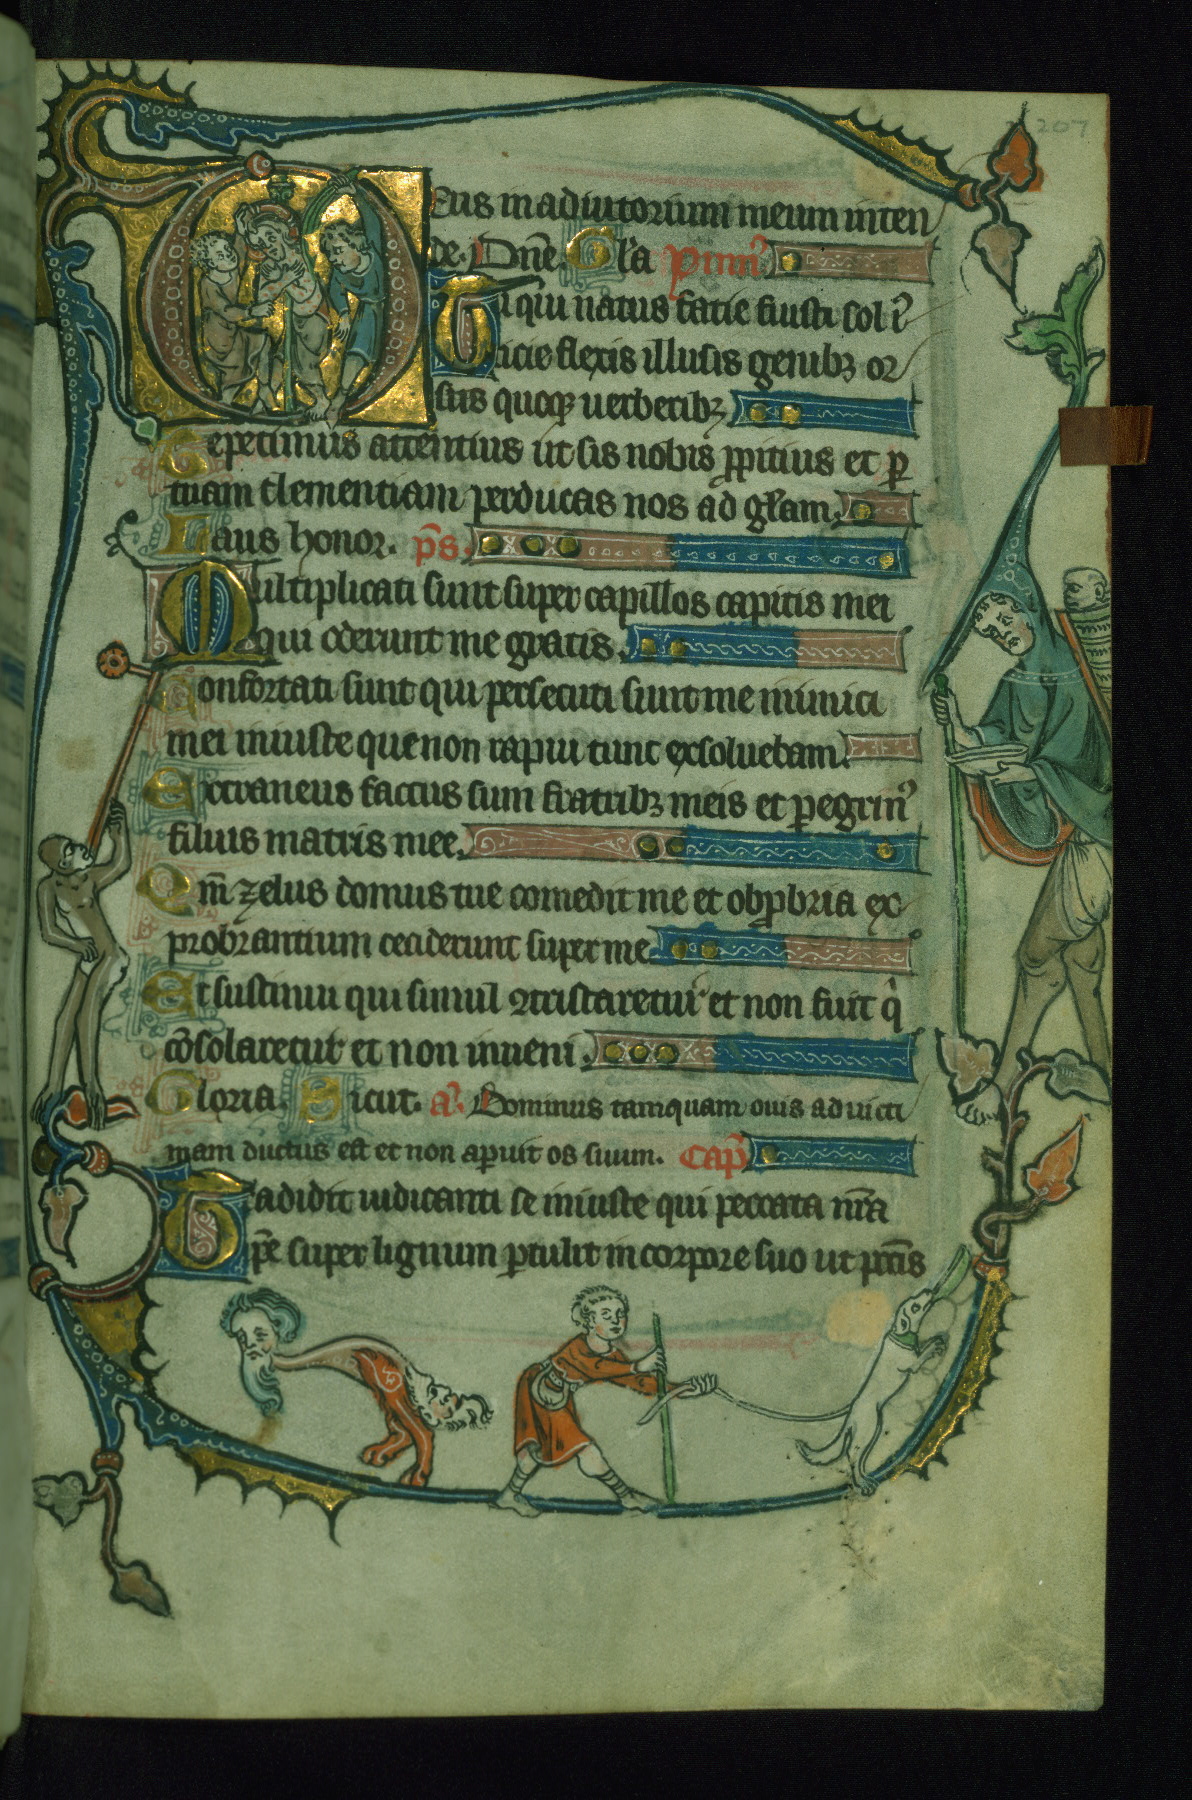 207
Deus in adiutorium meum inten
de. Dñe. Gl'a ỹmn'
Tu qui natus
flexis illusis genibꝫ or
sus quoqꝫ uerberibꝫ
Te petimus attentius ut sis nobis ꝓpitius et ꝑ
tuam clementiam perducas nos ad gl'am.
Laus honor. p̃s.
Multiplicati sunt super capillos capitis mei
qui oderunt me gratis.
Confortati sunt qui persecuti sunt me inimici
mei iniuste que non rapui tunc exsoluebam.
Extraneus factus sum fratribꝫ meis et ꝑegrin'
filiis matris mee.
Qm̃ zelus domus tue comedit me et obꝓbria ex
probrantium ceciderunt super me.
Et sustinui qui simul ꝯtristaretur et non fuit q̇
cõsolaretur et non inueni.
Gloria. Sicut. a'. Dominus tamquam ouis ad uicti
mam ductus est et non aperuit os suum. Cap̃
Tradidit iudicanti se iniuste qui peccata nr̃a
ip̃e super lignum ꝑtulit in corpore suo ut pctĩs